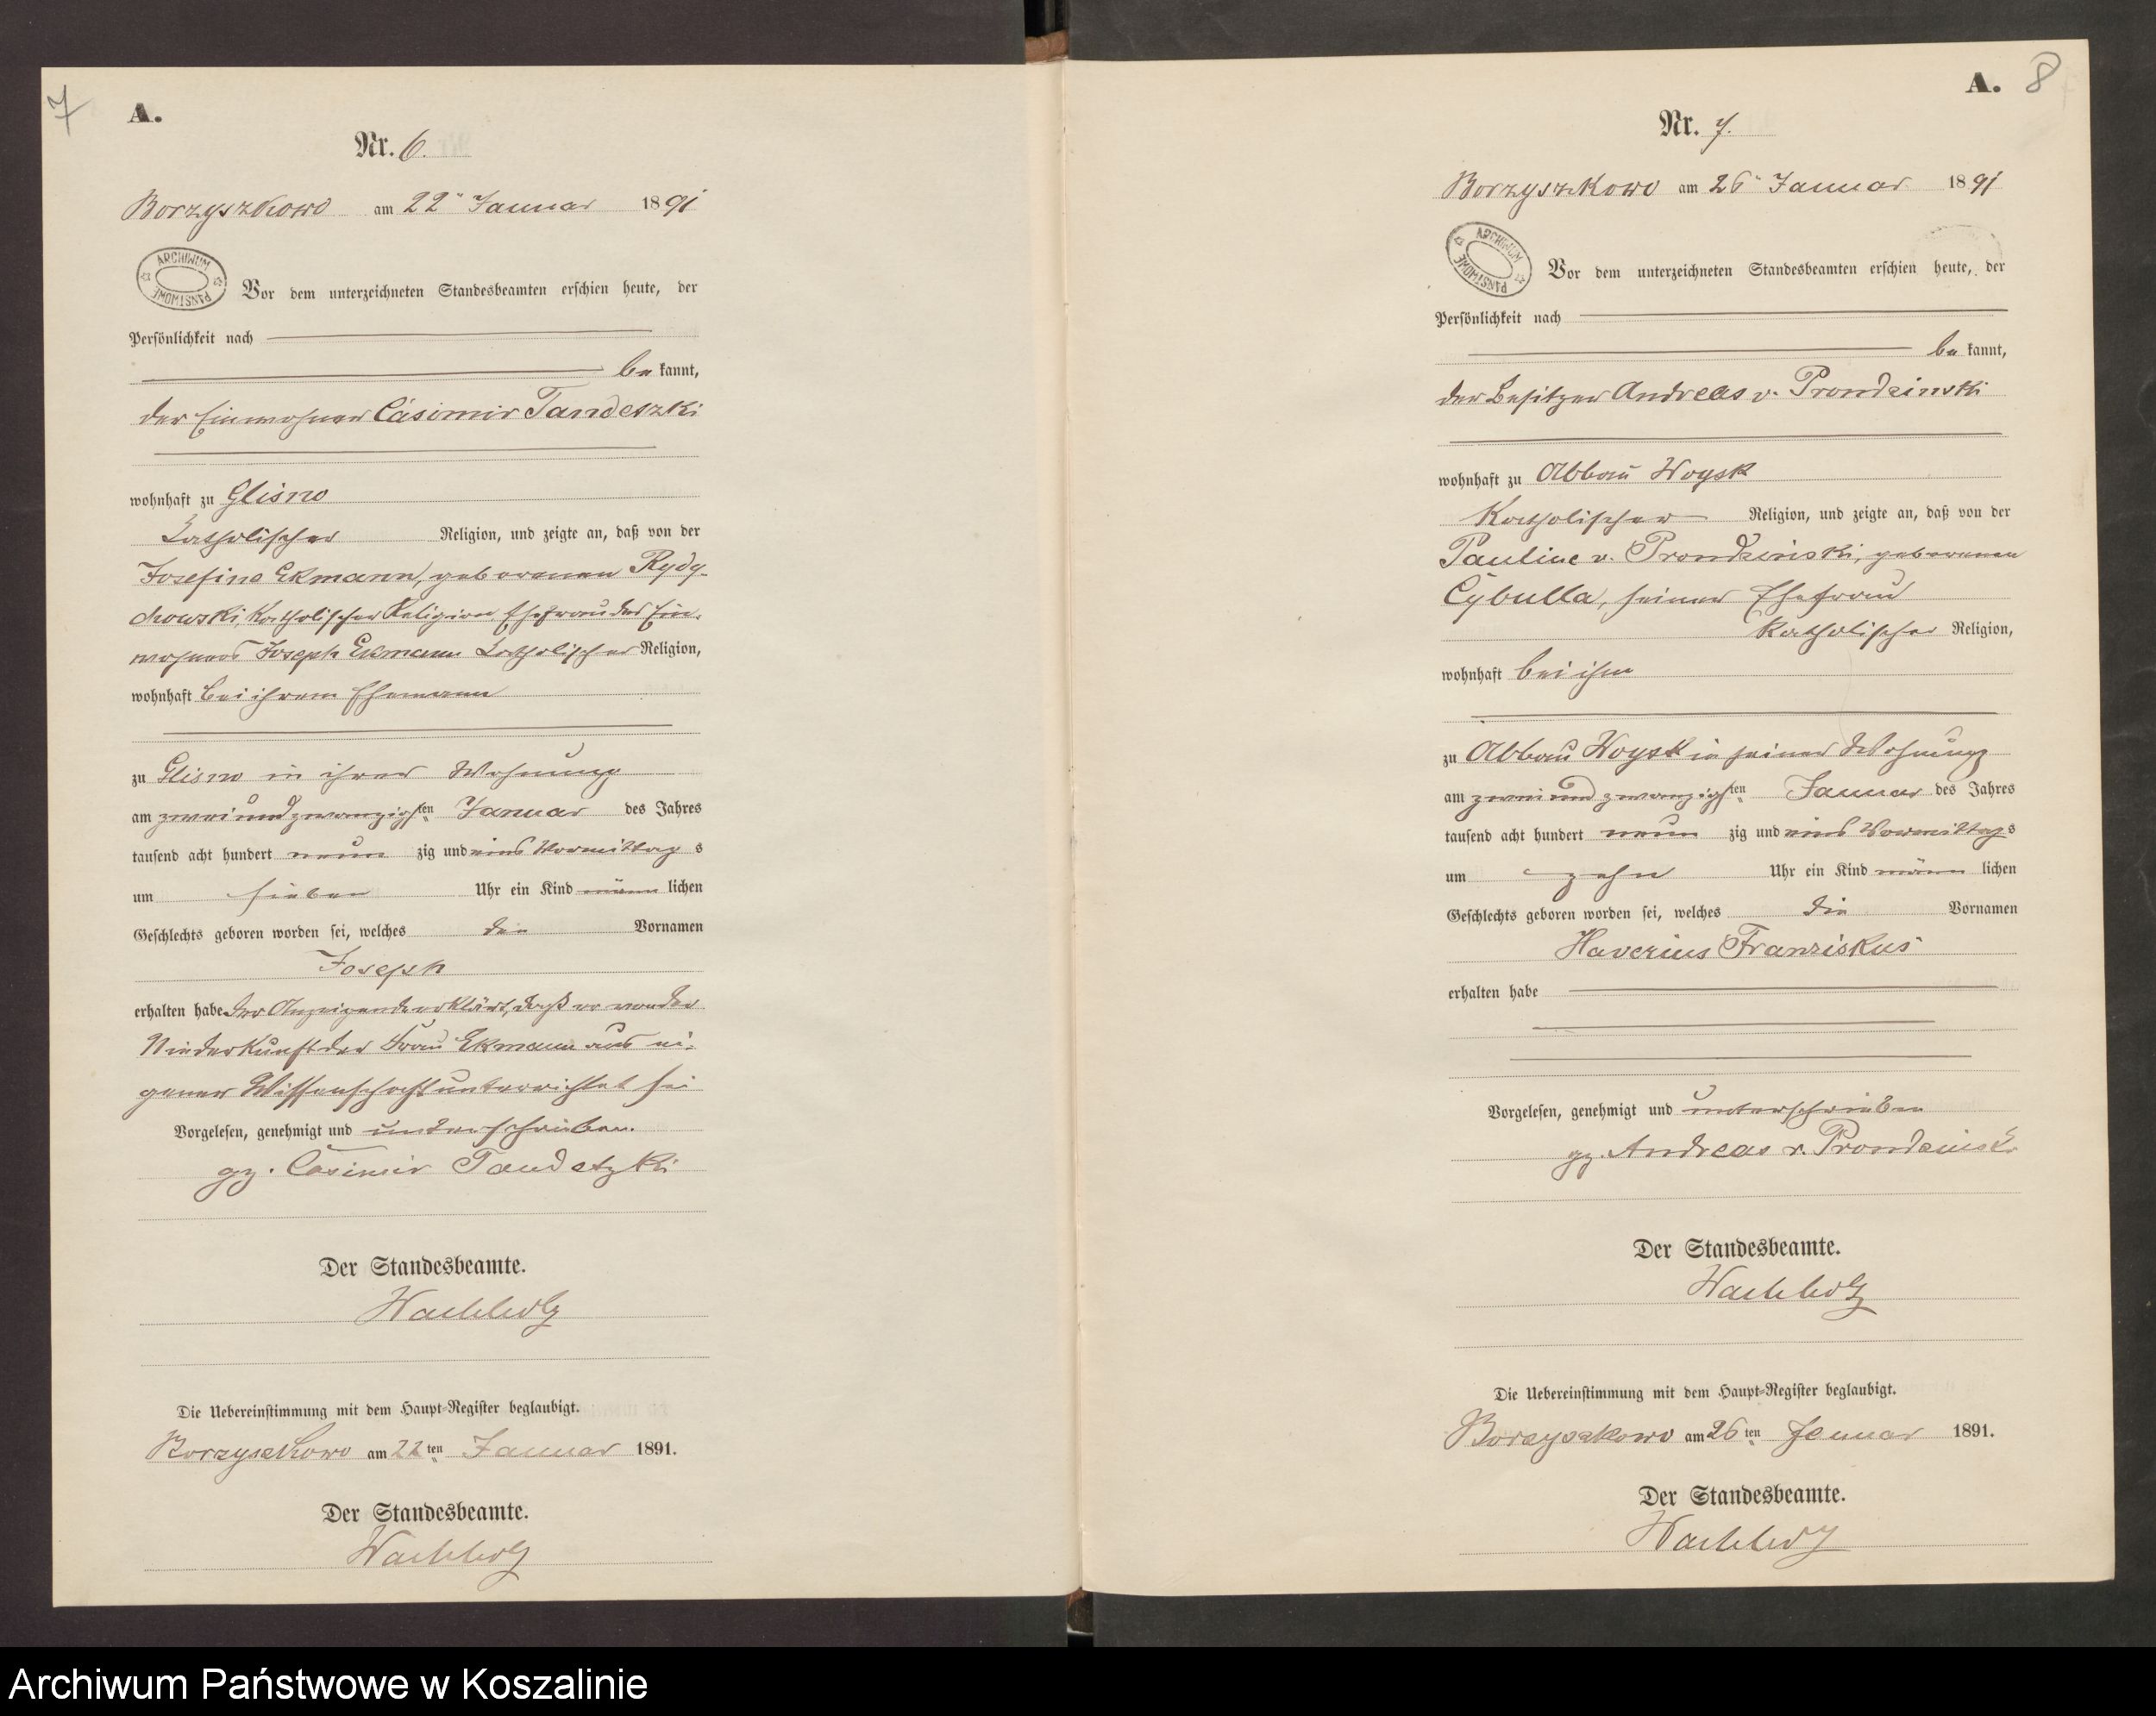 7
A.
Nr. 6.
Borzyszkowo am 22ten Januar 1891
ARCHIWUM PAŃSTWOWE
Vor dem unterzeichneten Standesbeamten erschien heute, der
Persönlichkeit nach
be kannt,
der Einwohner Casimir Tandetzki
wohnhaft zu Glisno
katholischer Religion, und zeigte an, daß von der
Josefine Ekmann, geborenen Rydy-
chowski, katholischer Religion Ehefrau des Ein-
wohners Joseph Ekmann katholischer Religion,
wohnhaft bei ihrem Ehemann
zu Glisno in ihrer Wohnung
am zweiundzwanzigsten Januar des Jahres
tausend acht hundert neun zig und eins Vormittag s
um sieben Uhr ein Kind männ lichen
Geschlechts geboren worden sei, welches den Vornamen
Joseph
erhalten habe. Der Anzeigende erklärt, daß er von der
Niederkunft der Frau Ekmann aus ei-
gener Wissenschaft unterrichtet sei
Vorgelesen, genehmigt und unterschrieben.
gz. Casimir Tandetzki
Der Standesbeamte.
Wachholz
Die Uebereinstimmung mit dem Haupt-Register beglaubigt.
Borzyszkowo am 22ten Januar 1891.
Der Standesbeamte.
Wachholz
A. 8
Nr. 7.
Borzyszkowo am 26ten Januar 1891
ARCHIWUM PAŃSTWOWE
Vor dem unterzeichneten Standesbeamten erschien heute, der
Persönlichkeit nach
be kannt,
der Besitzer Andreas v. Prondzinski
wohnhaft zu Abbau Woysk
katholischer Religion, und zeigte an, daß von der
Pauline v. Prondzinski, geborenen
Cybulla, seiner Ehefrau
katholischer Religion,
wohnhaft bei ihm
zu Abbau Woysk in seiner Wohnung
am zweiundzwanzigsten Januar des Jahres
tausend acht hundert neun zig und eins Vormittag s
um zehn Uhr ein Kind männ lichen
Geschlechts geboren worden sei, welches die Vornamen
Xaverius Franziskus
erhalten habe
Vorgelesen, genehmigt und unterschrieben
gz. Andreas v. Prondzinski
Der Standesbeamte.
Wachholz
Die Uebereinstimmung mit dem Haupt-Register beglaubigt.
Borzyszkowo am 26ten Januar 1891.
Der Standesbeamte.
Wachholz
Archiwum Państwowe w Koszalinie